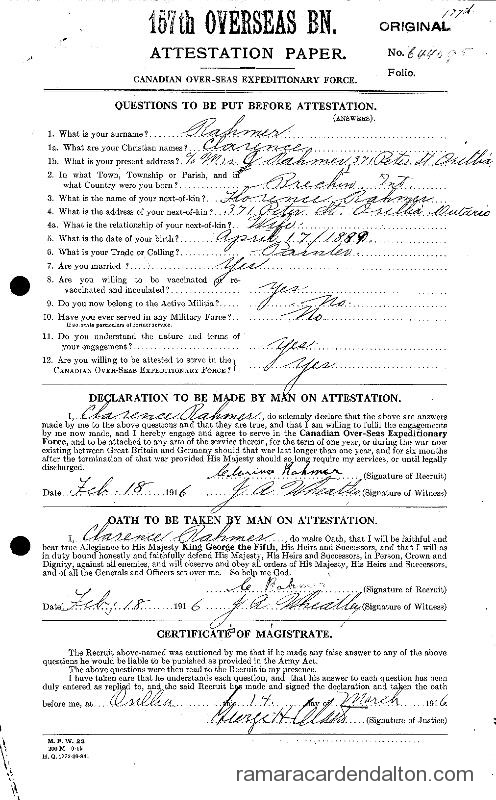 177th
157th OVERSEAS BN.
ORIGINAL
ATTESTATION PAPER.
No.
Folio.
CANADIAN OVER-SEAS EXPEDITIONARY FORCE.
QUESTIONS TO BE PUT BEFORE ATTESTATION.
(ANSWERS).
1. What is your surname? Rahmer
1a. What are your Christian names? Clarence
1b. What is your present address? c/o Mrs Rahmer, 371 Peter St Orillia
2. In what Town, Township or Parish, and in what Country were you born? Brechin Ont
3. What is the name of your next-of-kin? Florence Rahmer
4. What is the address of your next-of-kin? 371 Peter St. Orillia Ontario
4a. What is the relationship of your next-of-kin? Wife
5. What is the date of your birth? April 17/1889
6. What is your Trade or Calling? Painter
7. Are you married? Yes
8. Are you willing to be vaccinated or re-
vaccinated and inoculated? Yes.
9. Do you now belong to the Active Militia? No
10. Have you ever served in any Military Force? No
If so, state particulars of former service.
11. Do you understand the nature and terms of
your engagement? Yes.
12. Are you willing to be attested to serve in the
CANADIAN OVER-SEAS EXPEDITIONARY FORCE? Yes
DECLARATION TO BE MADE BY MAN ON ATTESTATION.
I, Clarence Rahmer, do solemnly declare that the above are answers
made by me to the above questions and that they are true, and that I am willing to fulfil the engagements
by me now made, and I hereby engage and agree to serve in the Canadian Over-Seas Expeditionary
Force, and to be attached to any arm of the service therein, for the term of one year, or during the war now
existing between Great Britain and Germany should that war last longer than one year, and for six months
after the termination of that war provided His Majesty should so long require my services, or until legally
discharged.
Clarence Rahmer (Signature of Recruit)
Date Feb. 18 1916 J A Wheatley (Signature of Witness)
OATH TO BE TAKEN BY MAN ON ATTESTATION.
I, Clarence Rahmer, do make Oath, that I will be faithful and
bear true Allegiance to His Majesty King George the Fifth, His Heirs and Successors, and that I will as
in duty bound honestly and faithfully defend His Majesty, His Heirs and Successors, in Person, Crown and
Dignity, against all enemies, and will observe and obey all orders of His Majesty, His Heirs and Successors,
and of all the Generals and Officers set over me. So help me God.
C Rahmer (Signature of Recruit)
Date Feb. 18 1916 J A Wheatley (Signature of Witness)
CERTIFICATE OF MAGISTRATE.
The Recruit above-named was cautioned by me that if he made any false answer to any of the above
questions he would be liable to be punished as provided in the Army Act.
The above questions were then read to the Recruit in my presence.
I have taken care that he understands each question, and that his answer to each question has been
duly entered as replied to, and the said Recruit has made and signed the declaration and taken the oath
before me, at Orillia this 14 day of March 1916
George H (Signature of Justice)
M. F. W. 23
200 M. 9-15
H. Q. 1772-39-84.
ramaracardendalton.com